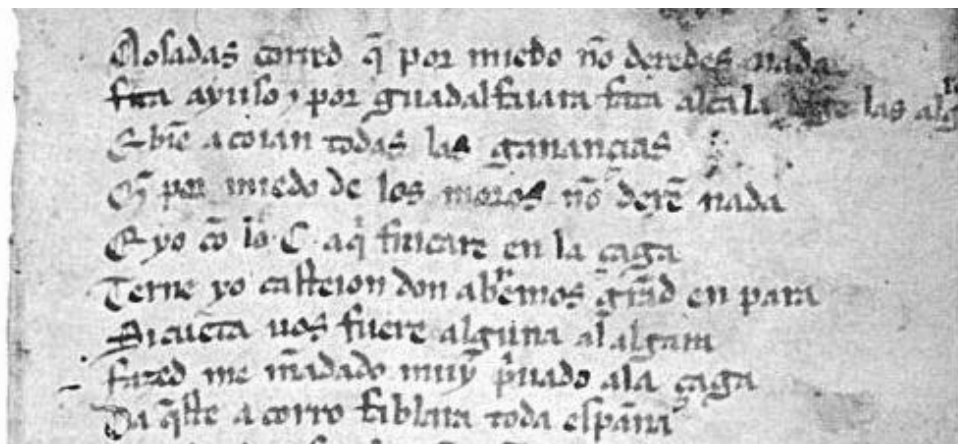 Aosadas corred q̃ por miedo nõ dexedes nada
fita ayuso ⁊ por guadalfaiara fata alcala legẽ las alg̃s
E biẽ acoian todas las ganançias
Q̃ por miedo de los moros nõ dexẽ nada
E yo cõ lo C aq̃ fincare en la çaga
Terne yo casteion don abremos grãd en para
Si cueta uos fuere alguna al algara
Fazed me mãdado muy p̃uado ala çaga
Da q̃ste acorro fablara toda espãna